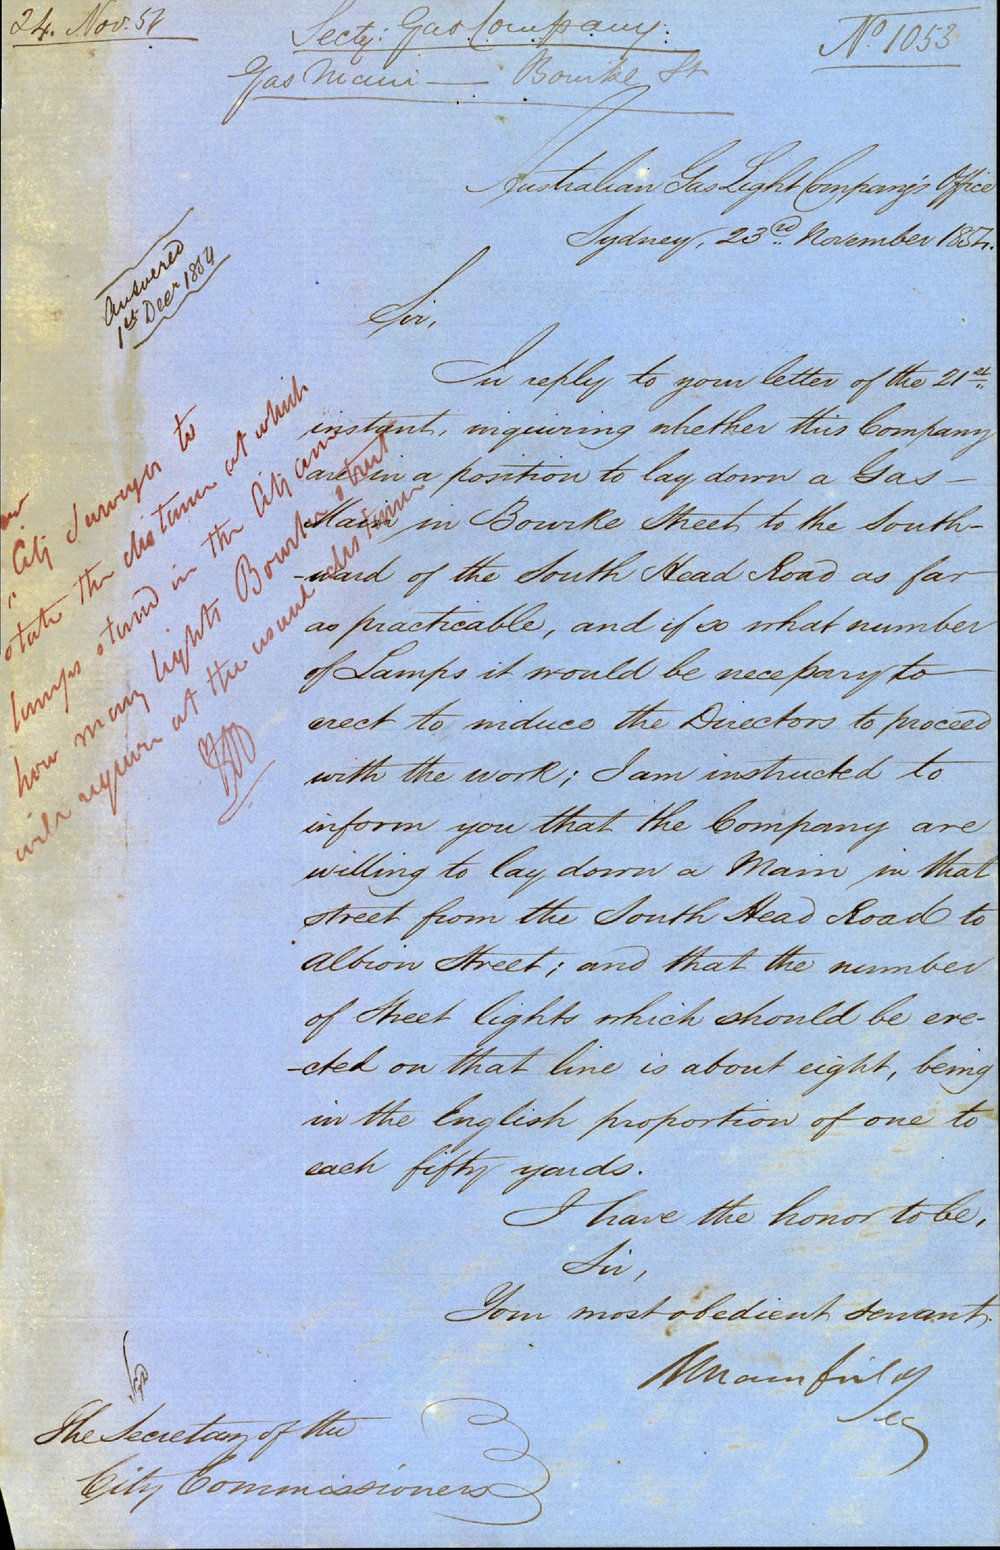 24. Nov. 54
Secty: Gas Company.
Gas Main — Bourke St
No 1053
Australian Gas Light Company's Office
Sydney, 23rd November 1854.
Answered
1st Decr 1854
Sir,
In reply to your letter of the 21st
instant, inquiring whether this Company
are in a position to lay down a Gas-
Main in Bourke Street to the South-
-ward of the South Head Road as far
as practicable, and if so what number
of Lamps it would be necessary to
erect to induce the Directors to proceed
with the work; I am instructed to
inform you that the Company are
willing to lay down a Main in that
street from the South Head Road to
Albion Street; and that the number
of Street lights which should be ere-
-cted on that line is about eight, being
in the English proportion of one to
each fifty yards.
I have the honor to be,
Sir,
Your most obedient servant.
Secy
City Surveyor to
state the distance at which
lamps stand in the City and
how many lights Bourke Street
will require at the usual distance
The Secretary of the
City Commissioners